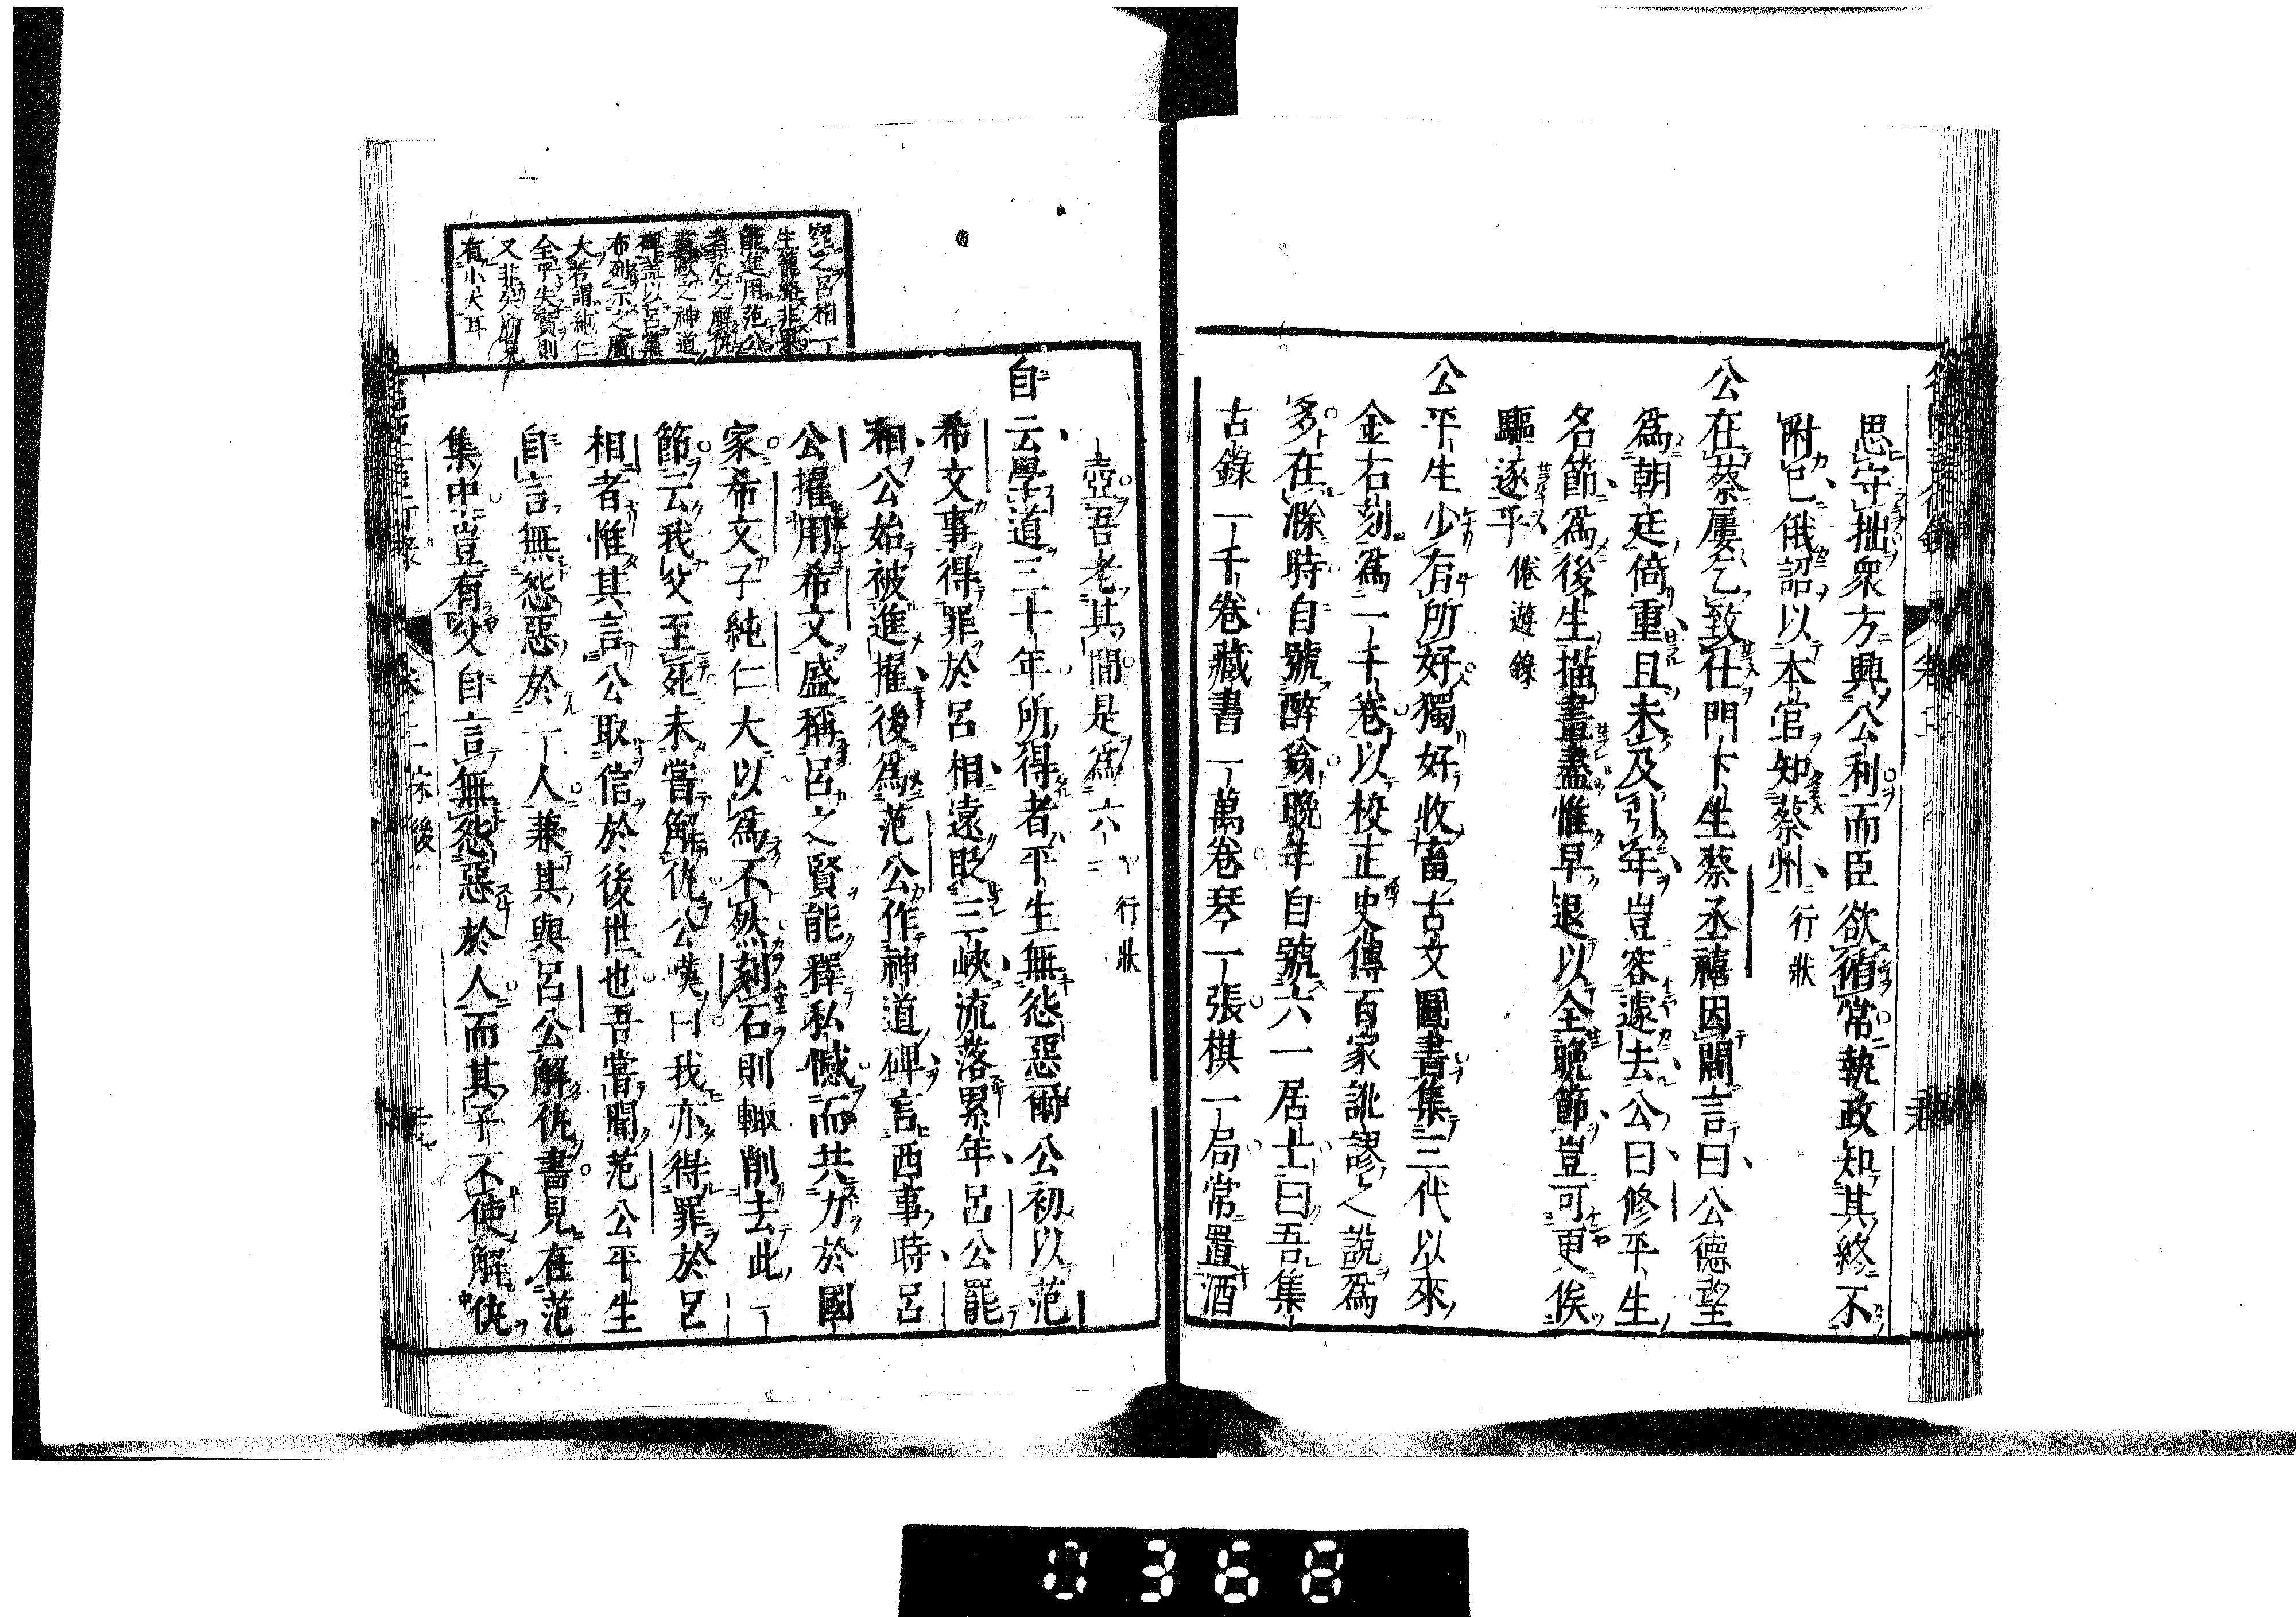 思守拙衆方興公利而臣欲循常執政知其終不
附已俄詔以本官知蔡州行狀
公在蔡屢乞致仕門下生蔡丞禧因間言曰公德望
爲朝廷倚重且未及引年豈容遽去公曰修平生
名節爲後生描畫盡惟早退以全晚節豈可更俟
驅逐乎倦遊錄
公平生少有所好獨好收畜古文圖書集三代以來
金石刻爲一千卷以校正史傳百家訛謬之說爲
多在滁時自號醉翁晚年自號六一居士曰吾集
古錄一千卷藏書一萬卷琴一張棋一局常置酒
一壺吾老其間是爲六一行狀
自云學道三十年所得者平生無怨惡爾公初以范
希文事得罪於呂相遠貶三峽流落累年呂公罷
相公始被進擢後爲范公作神道碑言西事時呂
公擢用希文盛稱呂之賢能釋私憾而共力於國
家希文子純仁大以爲不然刻石則輙削去此一
節云我父至死未嘗解仇公嘆曰我亦得罪於呂
相者惟其言公取信於後世也吾嘗聞范公平生
自言無怨惡於一人兼其與呂公解仇書見在范
集中豈有父自言無怨惡於人而其子不使解仇
能進用范公
者范之解仇
碑蓋以呂黨
布列示之廣
大若謂純仁
全乎失實則
又非矣所見
有小大耳
0368